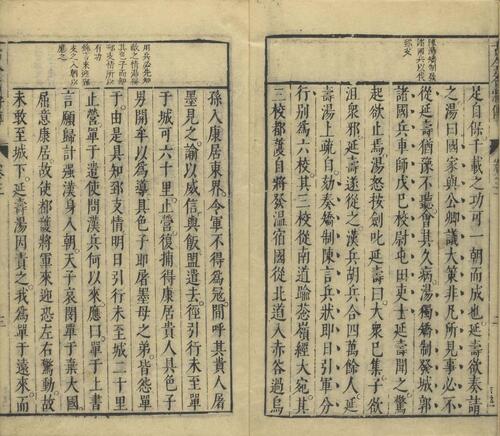 陳湯矯制發
諸國兵以伐
郅支
足自保千載之功可一朝而成也延壽欲奏請
之湯曰國家與公卿議大策非凡所見事必不
從延壽猶豫不聽會其久病湯獨矯制發城郭
諸國兵車師戊巳校尉屯田吏士延壽聞之驚
起欲止焉湯怒按劍叱延壽曰大衆巳集子欲
沮衆邪延壽遂從之漢兵胡兵合四萬餘人延
壽湯上疏自劾奏矯制陳言兵狀即日引軍分
行別為六校其三校從南道踰葱嶺經大宛其
三校都護自將發温宿國從北道入赤谷過烏
用兵必先知
敵之情湯得
其貴人子而知
郅支情所以
有功
孫入康居東界令軍不得為冦間呼其貴人屠
墨見之諭以威信與飲盟遣去徑引行未至單
于城可六十里止營復捕得康居貴人具色子
男開牟以為導具色子即屠墨母之弟皆怨單
于由是具知郅支情明日引行未至城二十里
止營單于遣使問漢兵何以來應曰單于上書
言願歸計强漢身入朝天子哀閔單于棄大國
屈意康居故使都護將軍來迎恐左右驚動故
未敢至城下延壽湯因責之我為單于遠來而